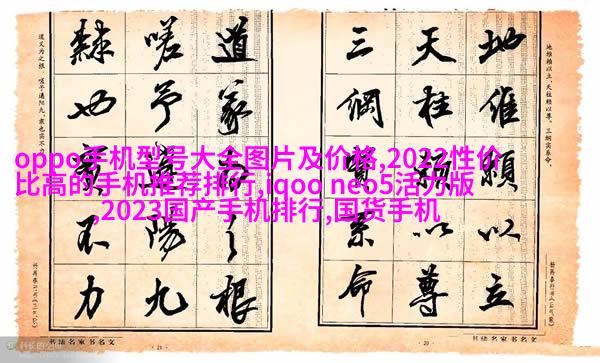 oppo手机型号大全图片及价格,2022性价
比高的手机推荐排行,iqoo neo5活力版
,2023国产手机排行,国货手机
地维赖以立,天柱赖以尊。三纲实系命,
地維賴以立
天柱賴以尊
三綱實系命
道義爲之根
嗟予遘陽九
隸也實不力
道义为之根。嗟予遘阳九,隶也实不力。
书法名家书名文
20
书法名家书名文
21